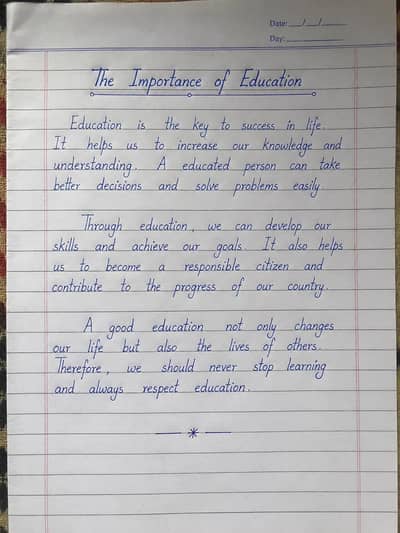 Date: __/__/____
Day: ____________
The Importance of Education
Education is the key to success in life.
It helps us to increase our knowledge and
understanding. A educated person can take
better decisions and solve problems easily.
Through education, we can develop our
skills and achieve our goals. It also helps
us to become a responsible citizen and
contribute to the progress of our country.
A good education not only changes
our life but also the lives of others.
Therefore, we should never stop learning
and always respect education.